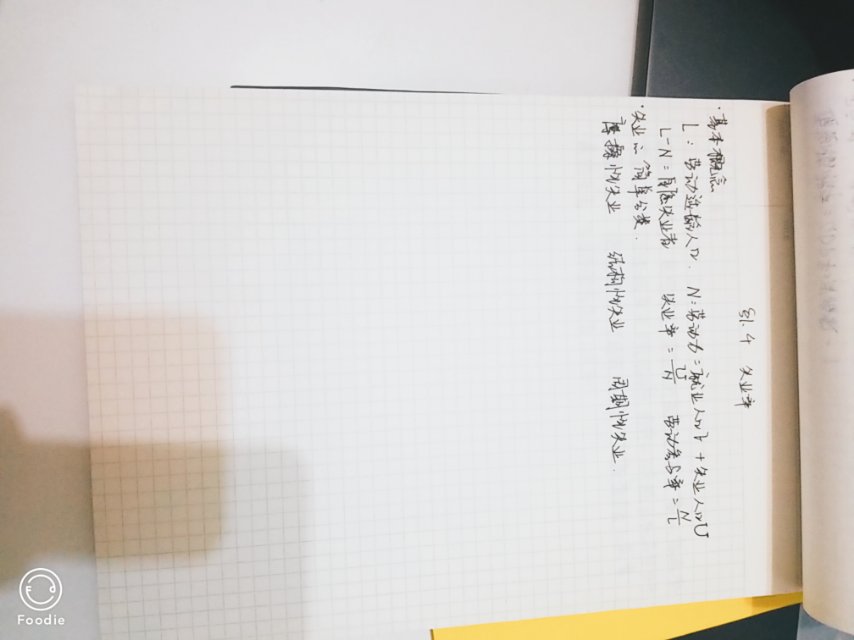 §1.4 失业率
·基本概念
L:劳动适龄人口. N:劳动力=就业人口E+失业人口U
L-N=自愿失业者 失业率=U/N 劳动参与率=N/L
·失业的简单分类.
摩擦性失业 结构性失业 周期性失业.
Foodie